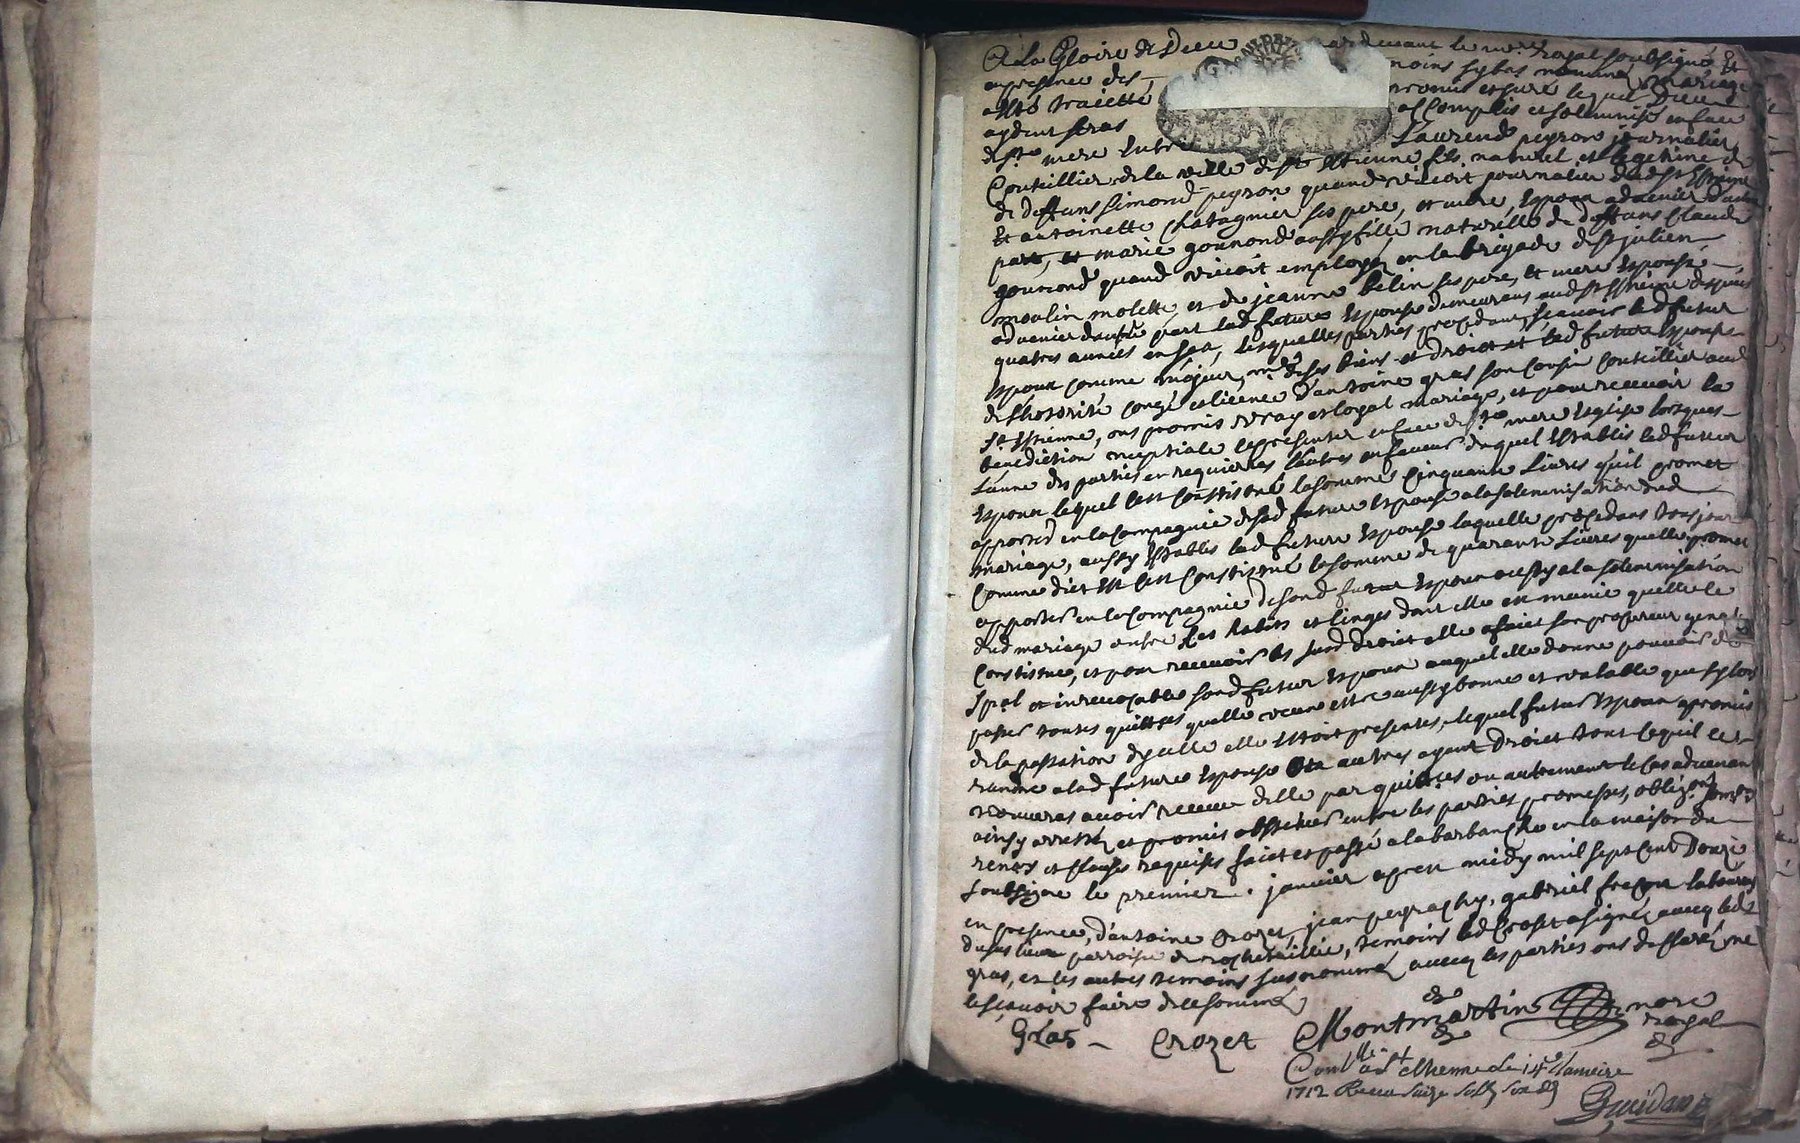 A La Gloire de Dieu pardevant le nore royal soubsigné, Et
en presence des tesmoins sybas nommés mariage
a esté traicté promis et juré lequel Dieu
aydant seras accomplis et solemnisé en face
de ste mere Laurend peyron journalier
Coutellier de la ville de St Estienne fils naturel et legitime de
de deffuns Simond peyron quand vivoit journalier dud St Estienne
Et antoinette Chatagnier ses pere, et mere, Espoux advenier d'une
part, et marie gournond aussy fille naturelle de deffuns Claude
gournond quand vivoit employé en la brigade de St julien
moulin molette et de jeanne belin ses pere, Et mere Espouse
advenier daultre part lad future Espouse demeurans aud St Estienne despuis
quatres années en sea, lesquelles parties procedans, scavoir led futur
Espoux comme majeur, mre de ses biens et droict et lad future Espouse
de l'hotorité congé et licence d'antoine gras son Cousin Coutellier aud
St Estienne, ons promis vray et loyal mariage, et pour recevoir la
benediction nuptiale se presenter en face de ste mere Esglise lorsques
l'unne des parties en requierras l'autres en faveur duquel Establis led futur
Espoux lequel cest constitué la somme cinquante livres qu'il promet
apporter en la compagnie de sad future Espouse a la solemnisation dud
mariage, aussy Establis lad future Espouse laquelle procedans tousjours
comme dict est cest constitué la somme de quarante livres quelle promet
apporter en la compagnie de sond futur Espoux aussy a la solemnisation
dud mariage outre ses habits et linges dont elle est munie quelle se
constitue, et pour recevoir les susd droict elle a faict son procureur genal
spal et inrevocable sond futur Espoux auquel elle donne pouvoir de
passer toutes quittces quelle veux estre aussy bonne et valable que sy lors
de la passation dycelle elle Estoit presentes, lequel futur Espoux a promis
randre a lad future Espouse ou autres ayant droict tout lequil ce
trouveras avoir receue delle par quittces ou autrement le cas advenant
ainsy arresté et promis observer entre les parties promesses, obligons
renons et clauses requises faict et passé a la barbanche en la maison du
soubsigne le premier janvier apres midy mil sept cent Douze
en presence, d'antoine Crozet, jean peyrachy, gabriel frecon laboureurs
dusus lieux parroisse de rochetaillie, temoins led Crozet a signé, avecq led
gras, et les autres temoins susnommé avecq les parties ons desclaré ne
le sçavoir faire de ce sommé
Gras Crozet Montmartin nore
royal
Conlle a St Etienne Le 14e Janvier
1712 Receu
Gueidan